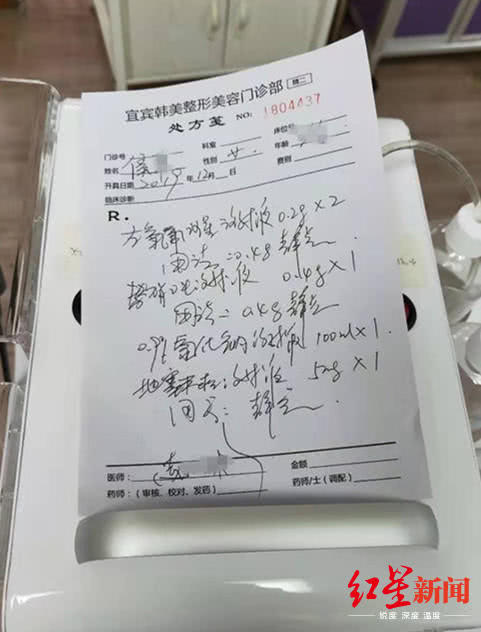 宜宾韩美整形美容门诊部 精二
处方笺 NO: 1804437
门诊号 科室 床位号
姓名 性别 女 年龄
开具日期 2019年12月 日 费别
临床诊断
R.
左氧氟沙星注射液 0.2g×2
用法: 0.4g 静点
替硝唑注射液 0.4g×1
用法: 0.4g 静点
0.9%氯化钠注射液 100ml×1
地塞米松注射液 5mg×1
用法: 静点
医师: 金额
药师:(审核、校对、发药) 药师/士(调配)
红星新闻
锐度 深度 温度